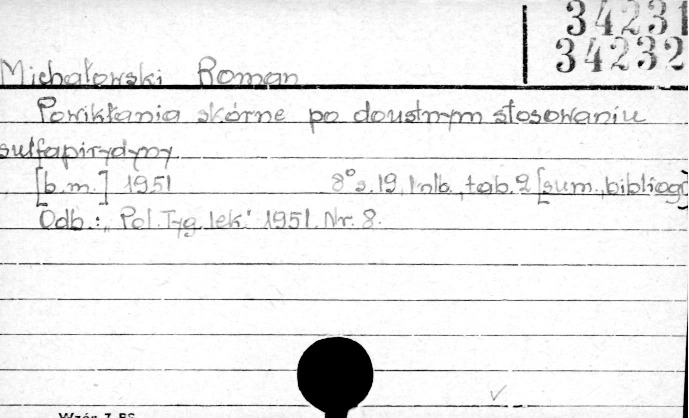 34231
34232
Michałowski Roman
Powikłania skórne po doustnym stosowaniu
sulfapirydyny
[b.m.] 1951 8° s.19, 1 nlb., tab. 2 [sum., bibliogr]
Odb.: „Pol. Tyg. lek." 1951. Nr. 8.
Wzór 7 BS